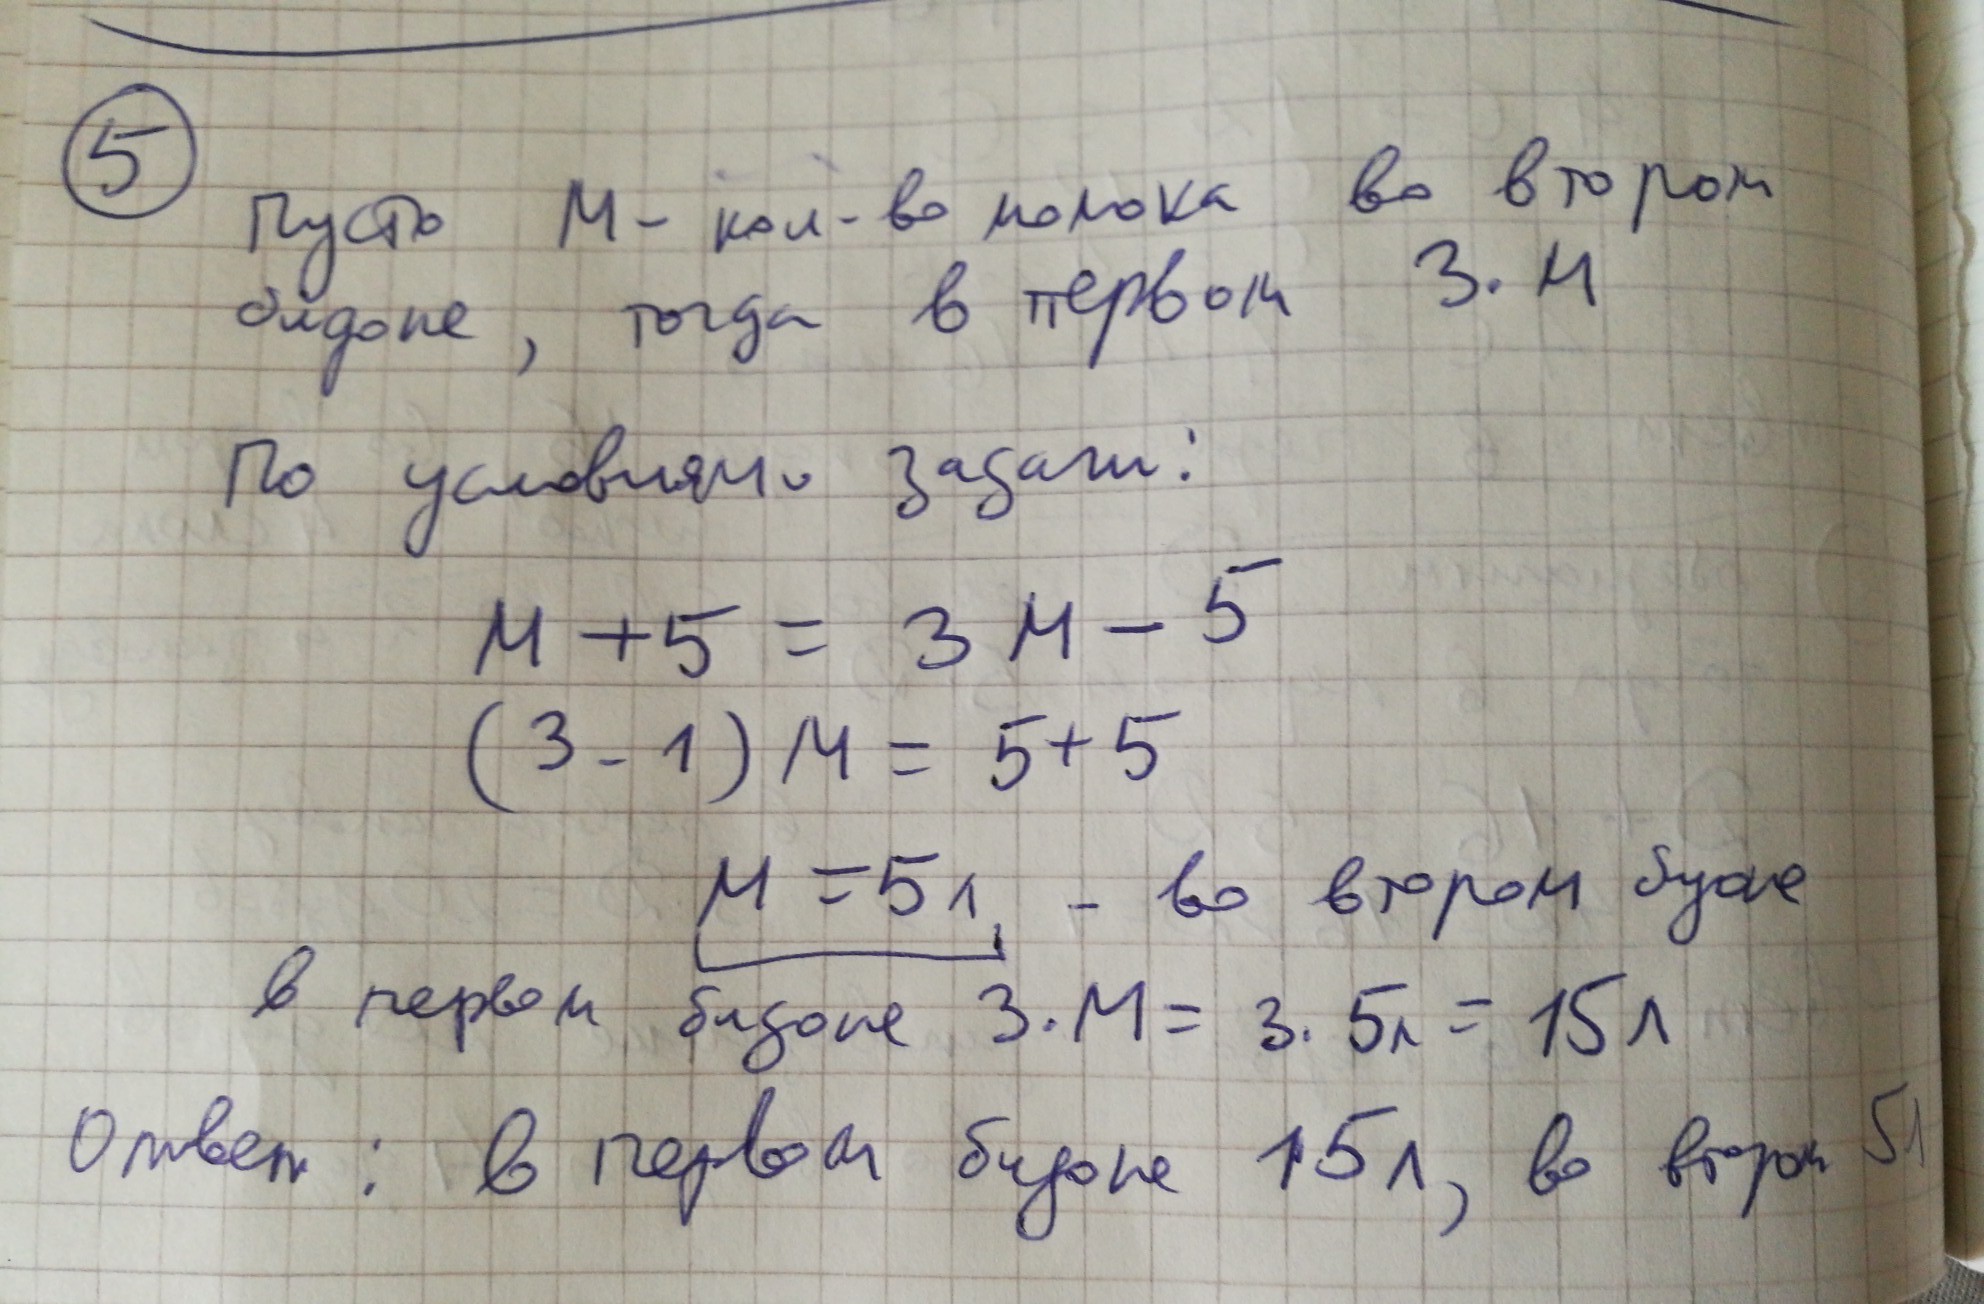 5
Пусть М - кол-во молока во втором
бидоне, тогда в первом 3·М
По условиям задачи:
М + 5 = 3М - 5
(3 - 1) М = 5 + 5
М = 5л - во втором бидоне
в первом бидоне 3·М = 3·5л = 15л
Ответ: в первом бидоне 15л, во втором 5л